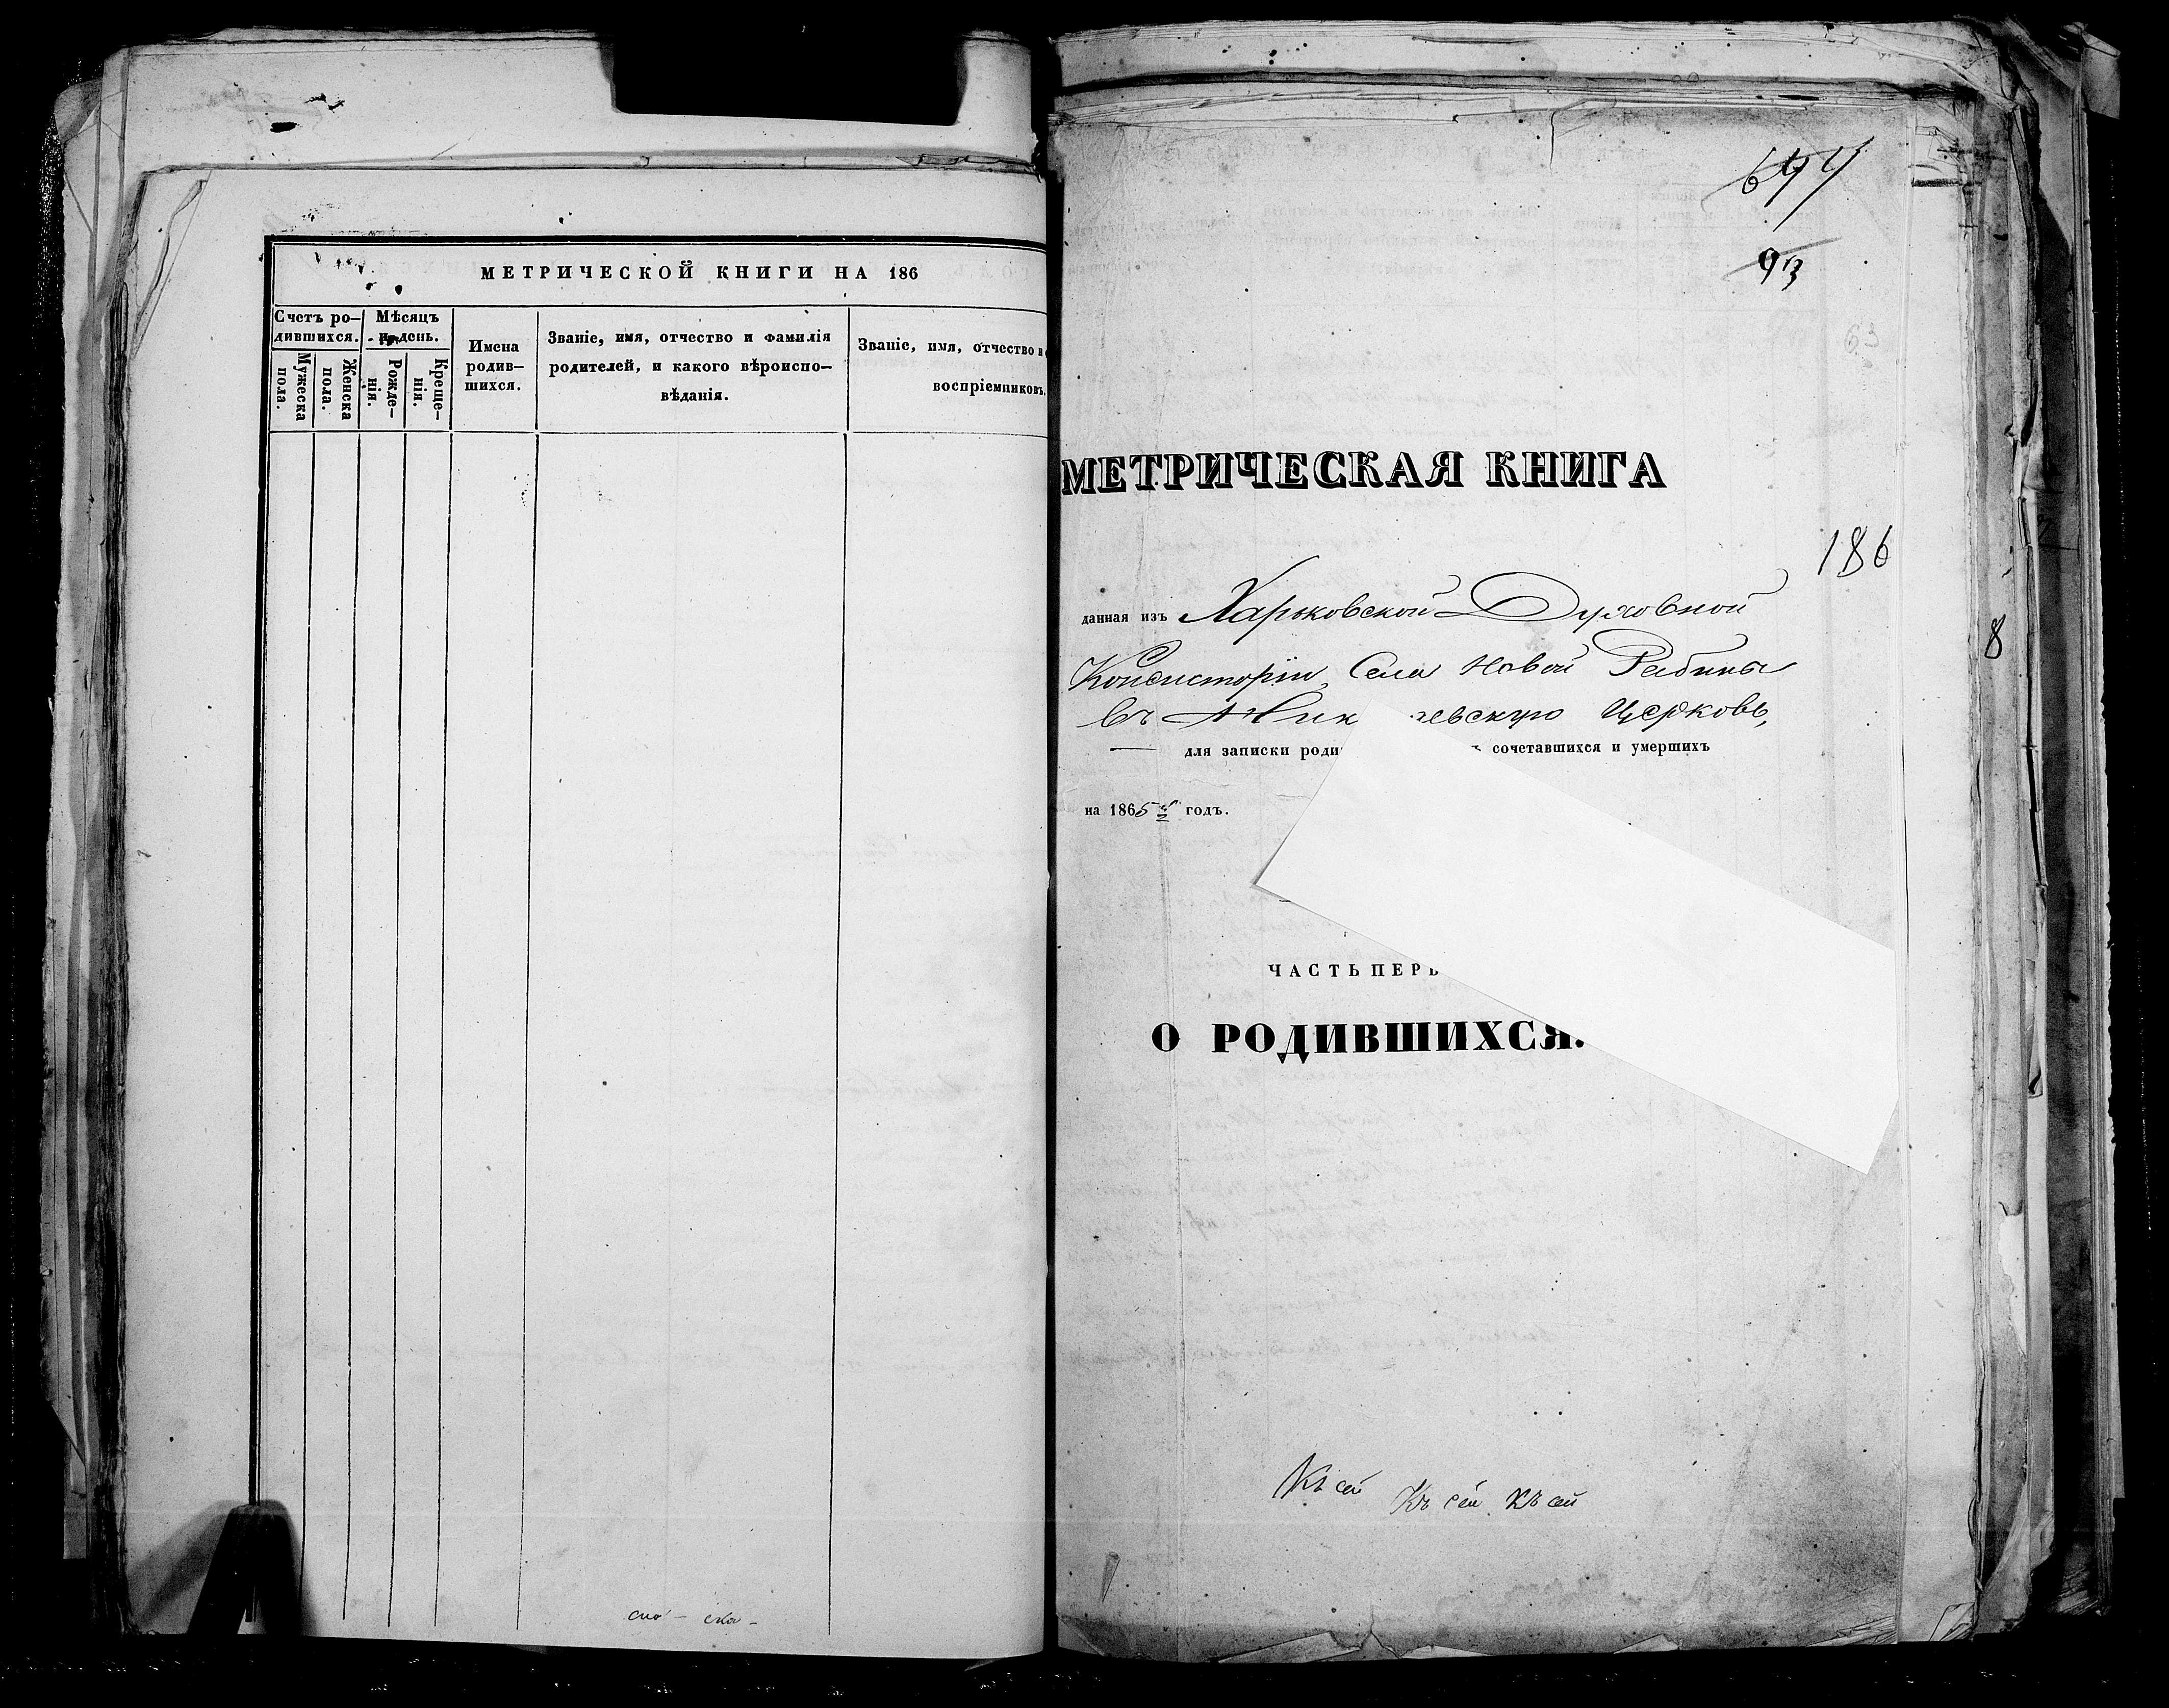 МЕТРИЧЕСКОЙ КНИГИ НА 186
Счетъ ро-
дившихся.
Мѣсяцъ
и день.
Мужеска
пола.
Женска
пола.
Рожде-
нія.
Креще-
нія.
Имена
родив-
шихся.
Званіе, имя, отчество и фамилія
родителей, и какого вѣроиспо-
вѣданія.
Званіе, имя, отчество и
воспріемниковъ.
93
63
МЕТРИЧЕСКАЯ КНИГА
186
данная изъ Харьковской Духовной
Консисторіи, Села Новой Рабины
въ Ник аевскую Церковь,
для записки роди сочетавшихся и умершихъ
на 1865 годъ.
8
ЧАСТЬ ПЕРВ
О РОДИВШИХСЯ.
Къ сей Къ сей Къ сей